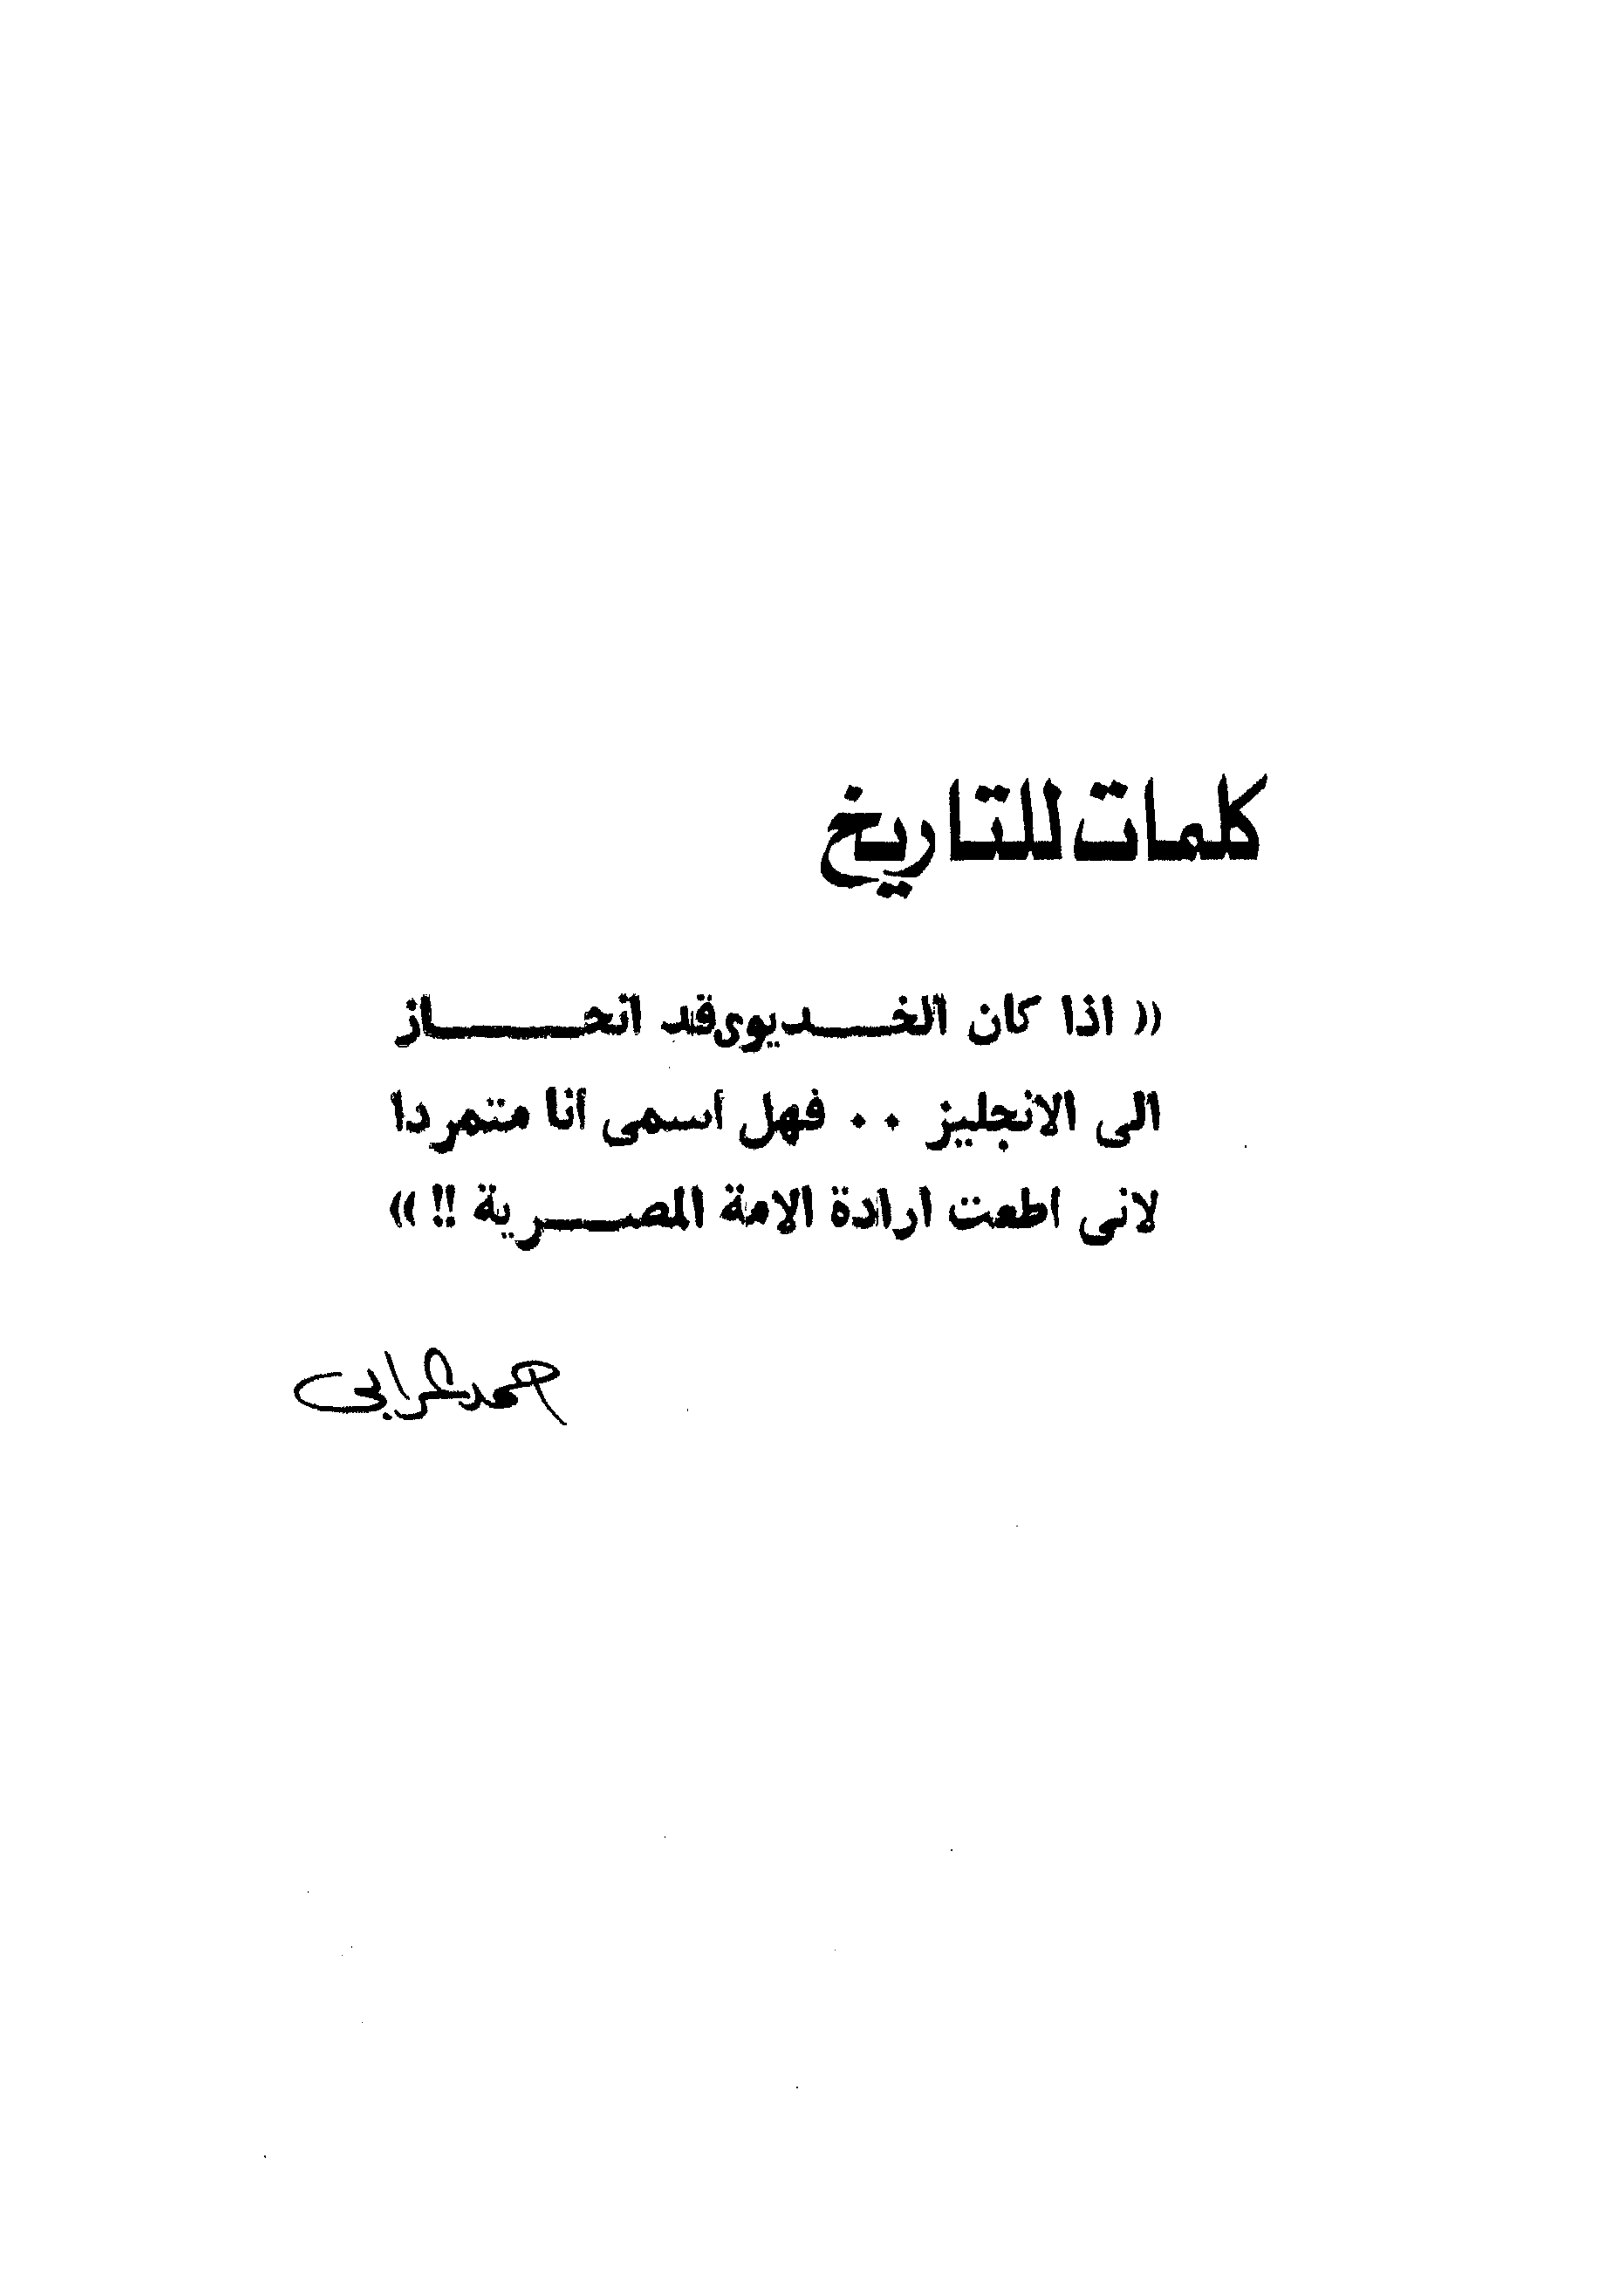 كلمات للتاريخ
(( اذا كان الخـــديوى قد انحـــــاز
الى الانجليز .. فهل اسمى انا متمردا
لانى اطعت ارادة الامة المصـــرية !! ))
احمد عرابى